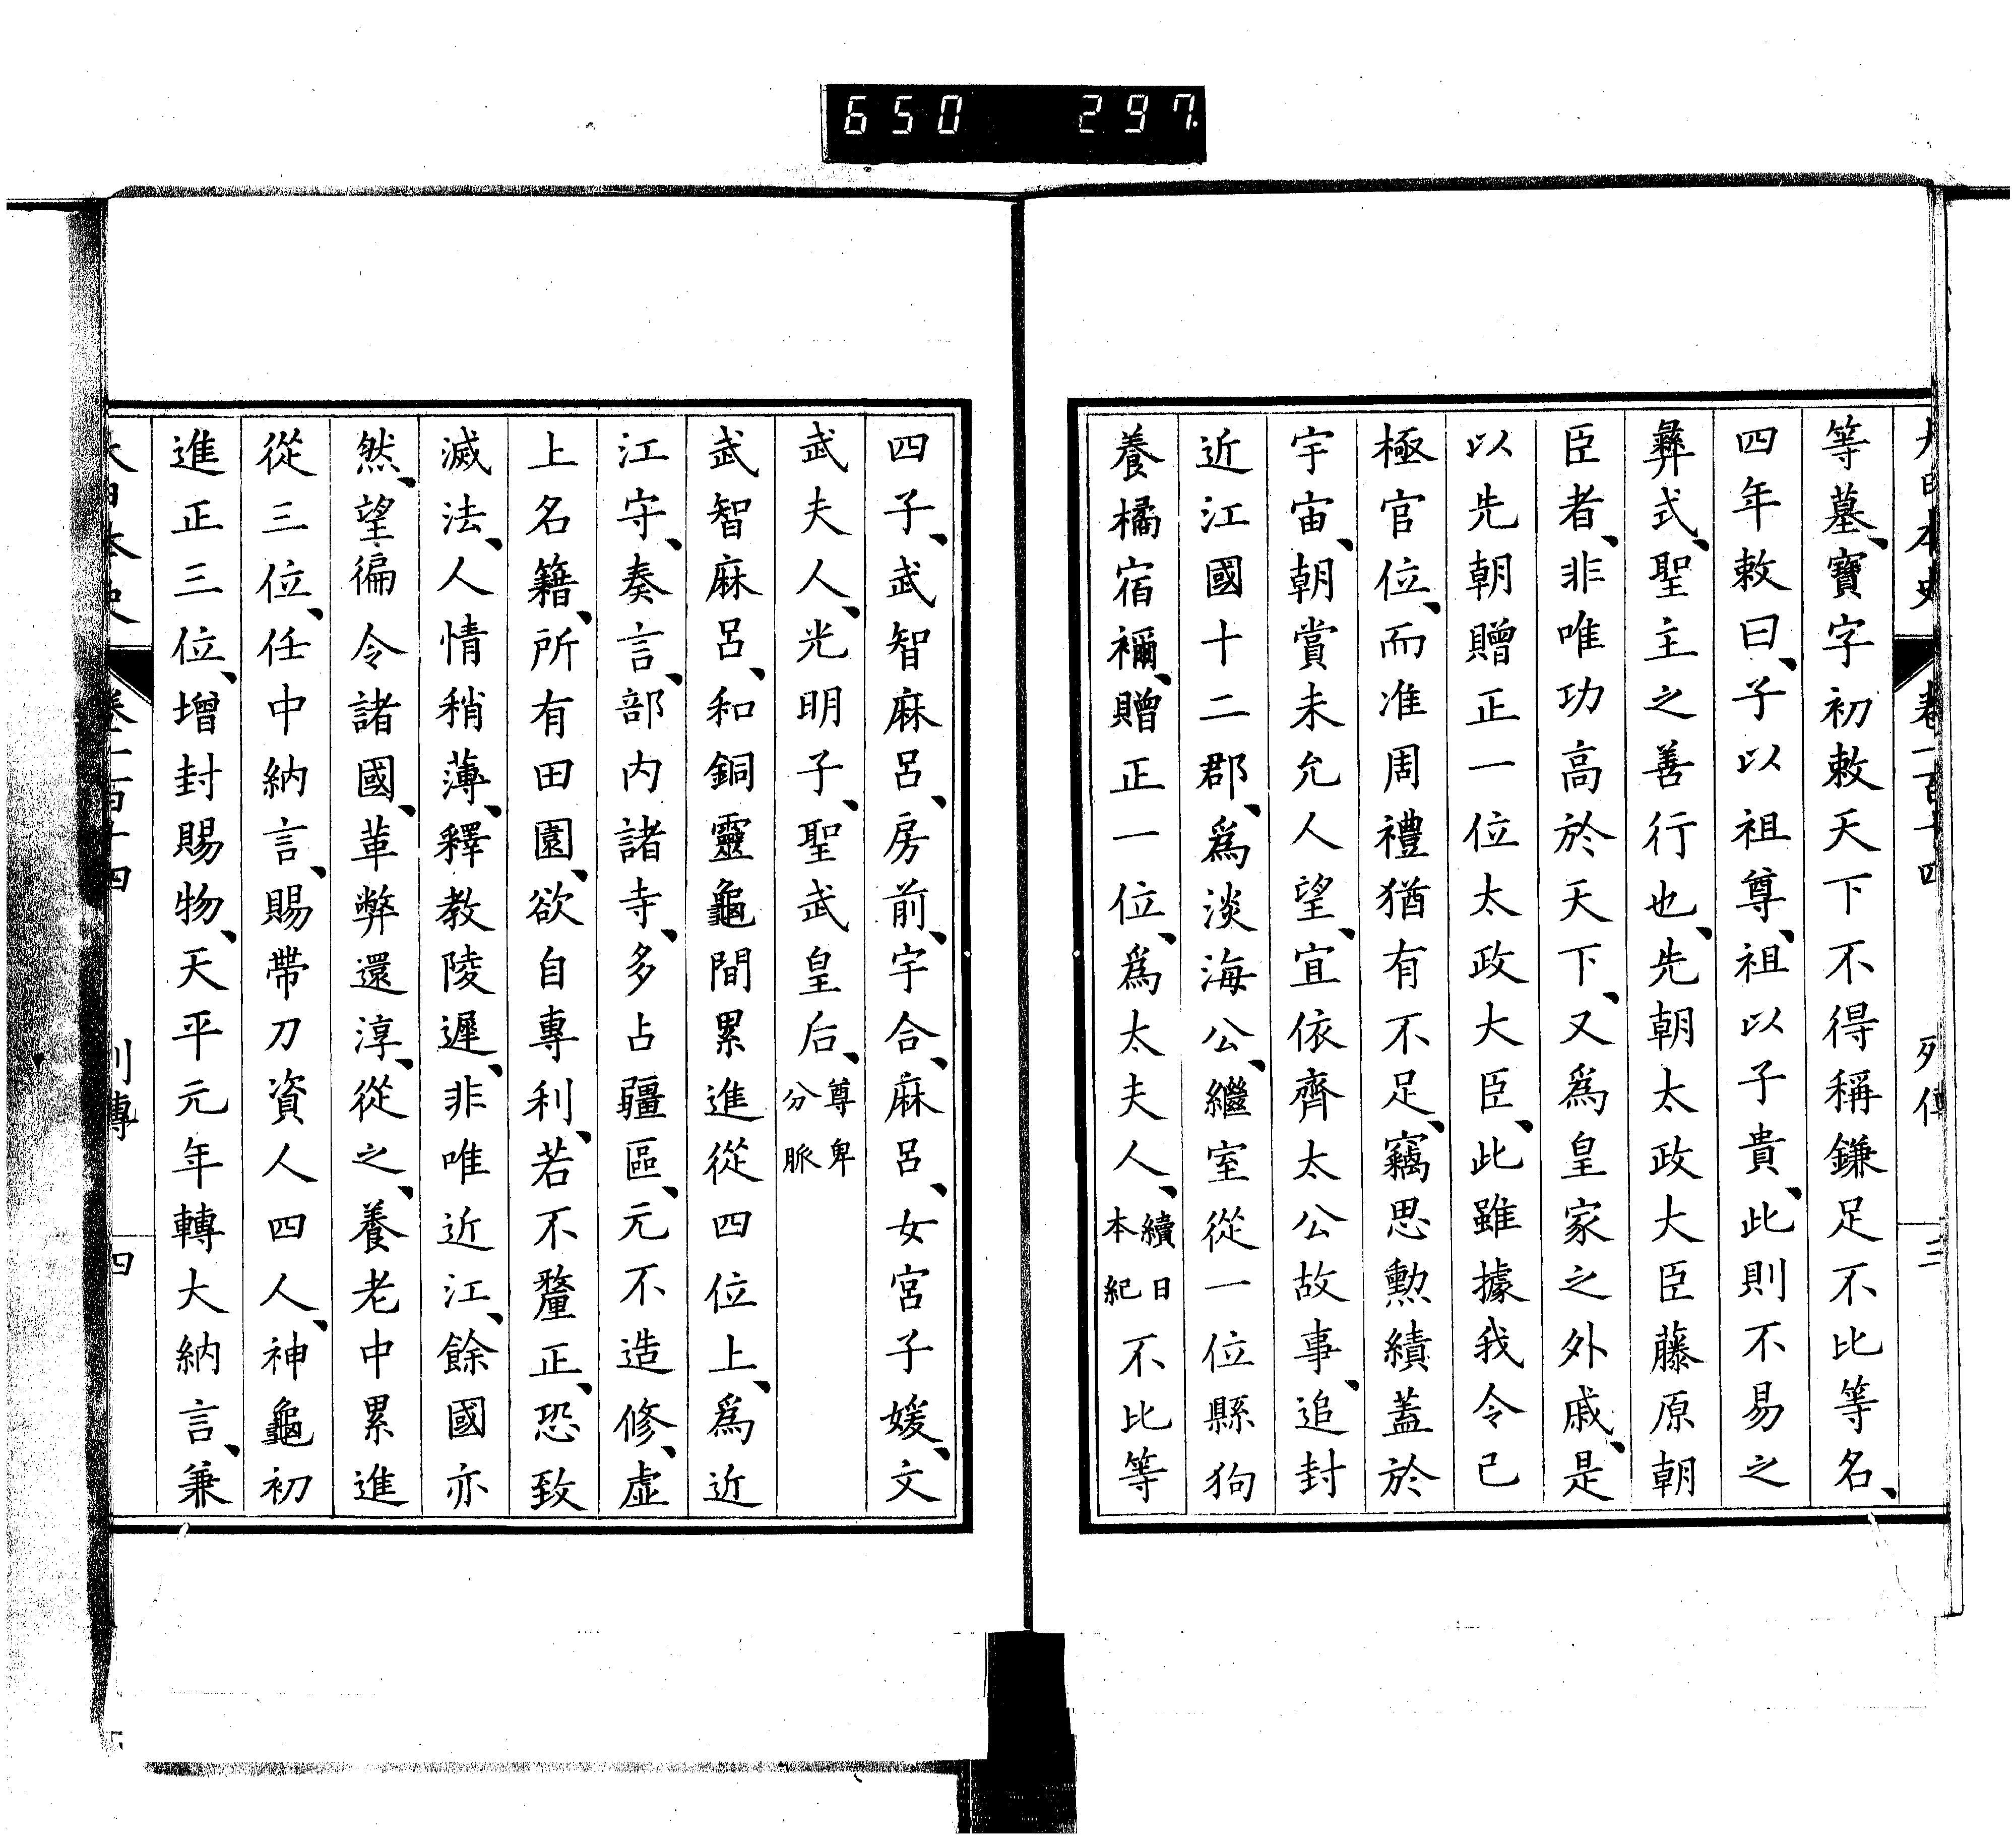 650 297
大日本史 卷一百十四 列傳 三
等墓、寶字初敕天下不得稱鎌足不比等名、
四年敕曰、子以祖尊、祖以子貴、此則不易之
彝式、聖主之善行也、先朝太政大臣藤原朝
臣者、非唯功高於天下、又爲皇家之外戚、是
以先朝贈正一位太政大臣、此雖據我令已
極官位、而准周禮猶有不足、竊思勲績蓋於
宇宙、朝賞未允人望、宜依齊太公故事、追封
近江國十二郡、爲淡海公、繼室從一位縣狗
養橘宿禰、贈正一位、爲太夫人、續日本紀不比等
四子、武智麻呂、房前、宇合、麻呂、女宮子媛、文
武夫人、光明子、聖武皇后、尊卑分脈
武智麻呂、和銅靈龜間累進從四位上、爲近
江守、奏言、部内諸寺、多占疆區、元不造修、虛
上名籍、所有田園、欲自專利、若不釐正、恐致
滅法、人情稍薄、釋教陵遲、非唯近江、餘國亦
然、望徧令諸國、革弊還淳、從之、養老中累進
從三位、任中納言、賜帶刀資人四人、神龜初
進正三位、增封賜物、天平元年轉大納言、兼
大日本史 卷一百十四 列傳 四